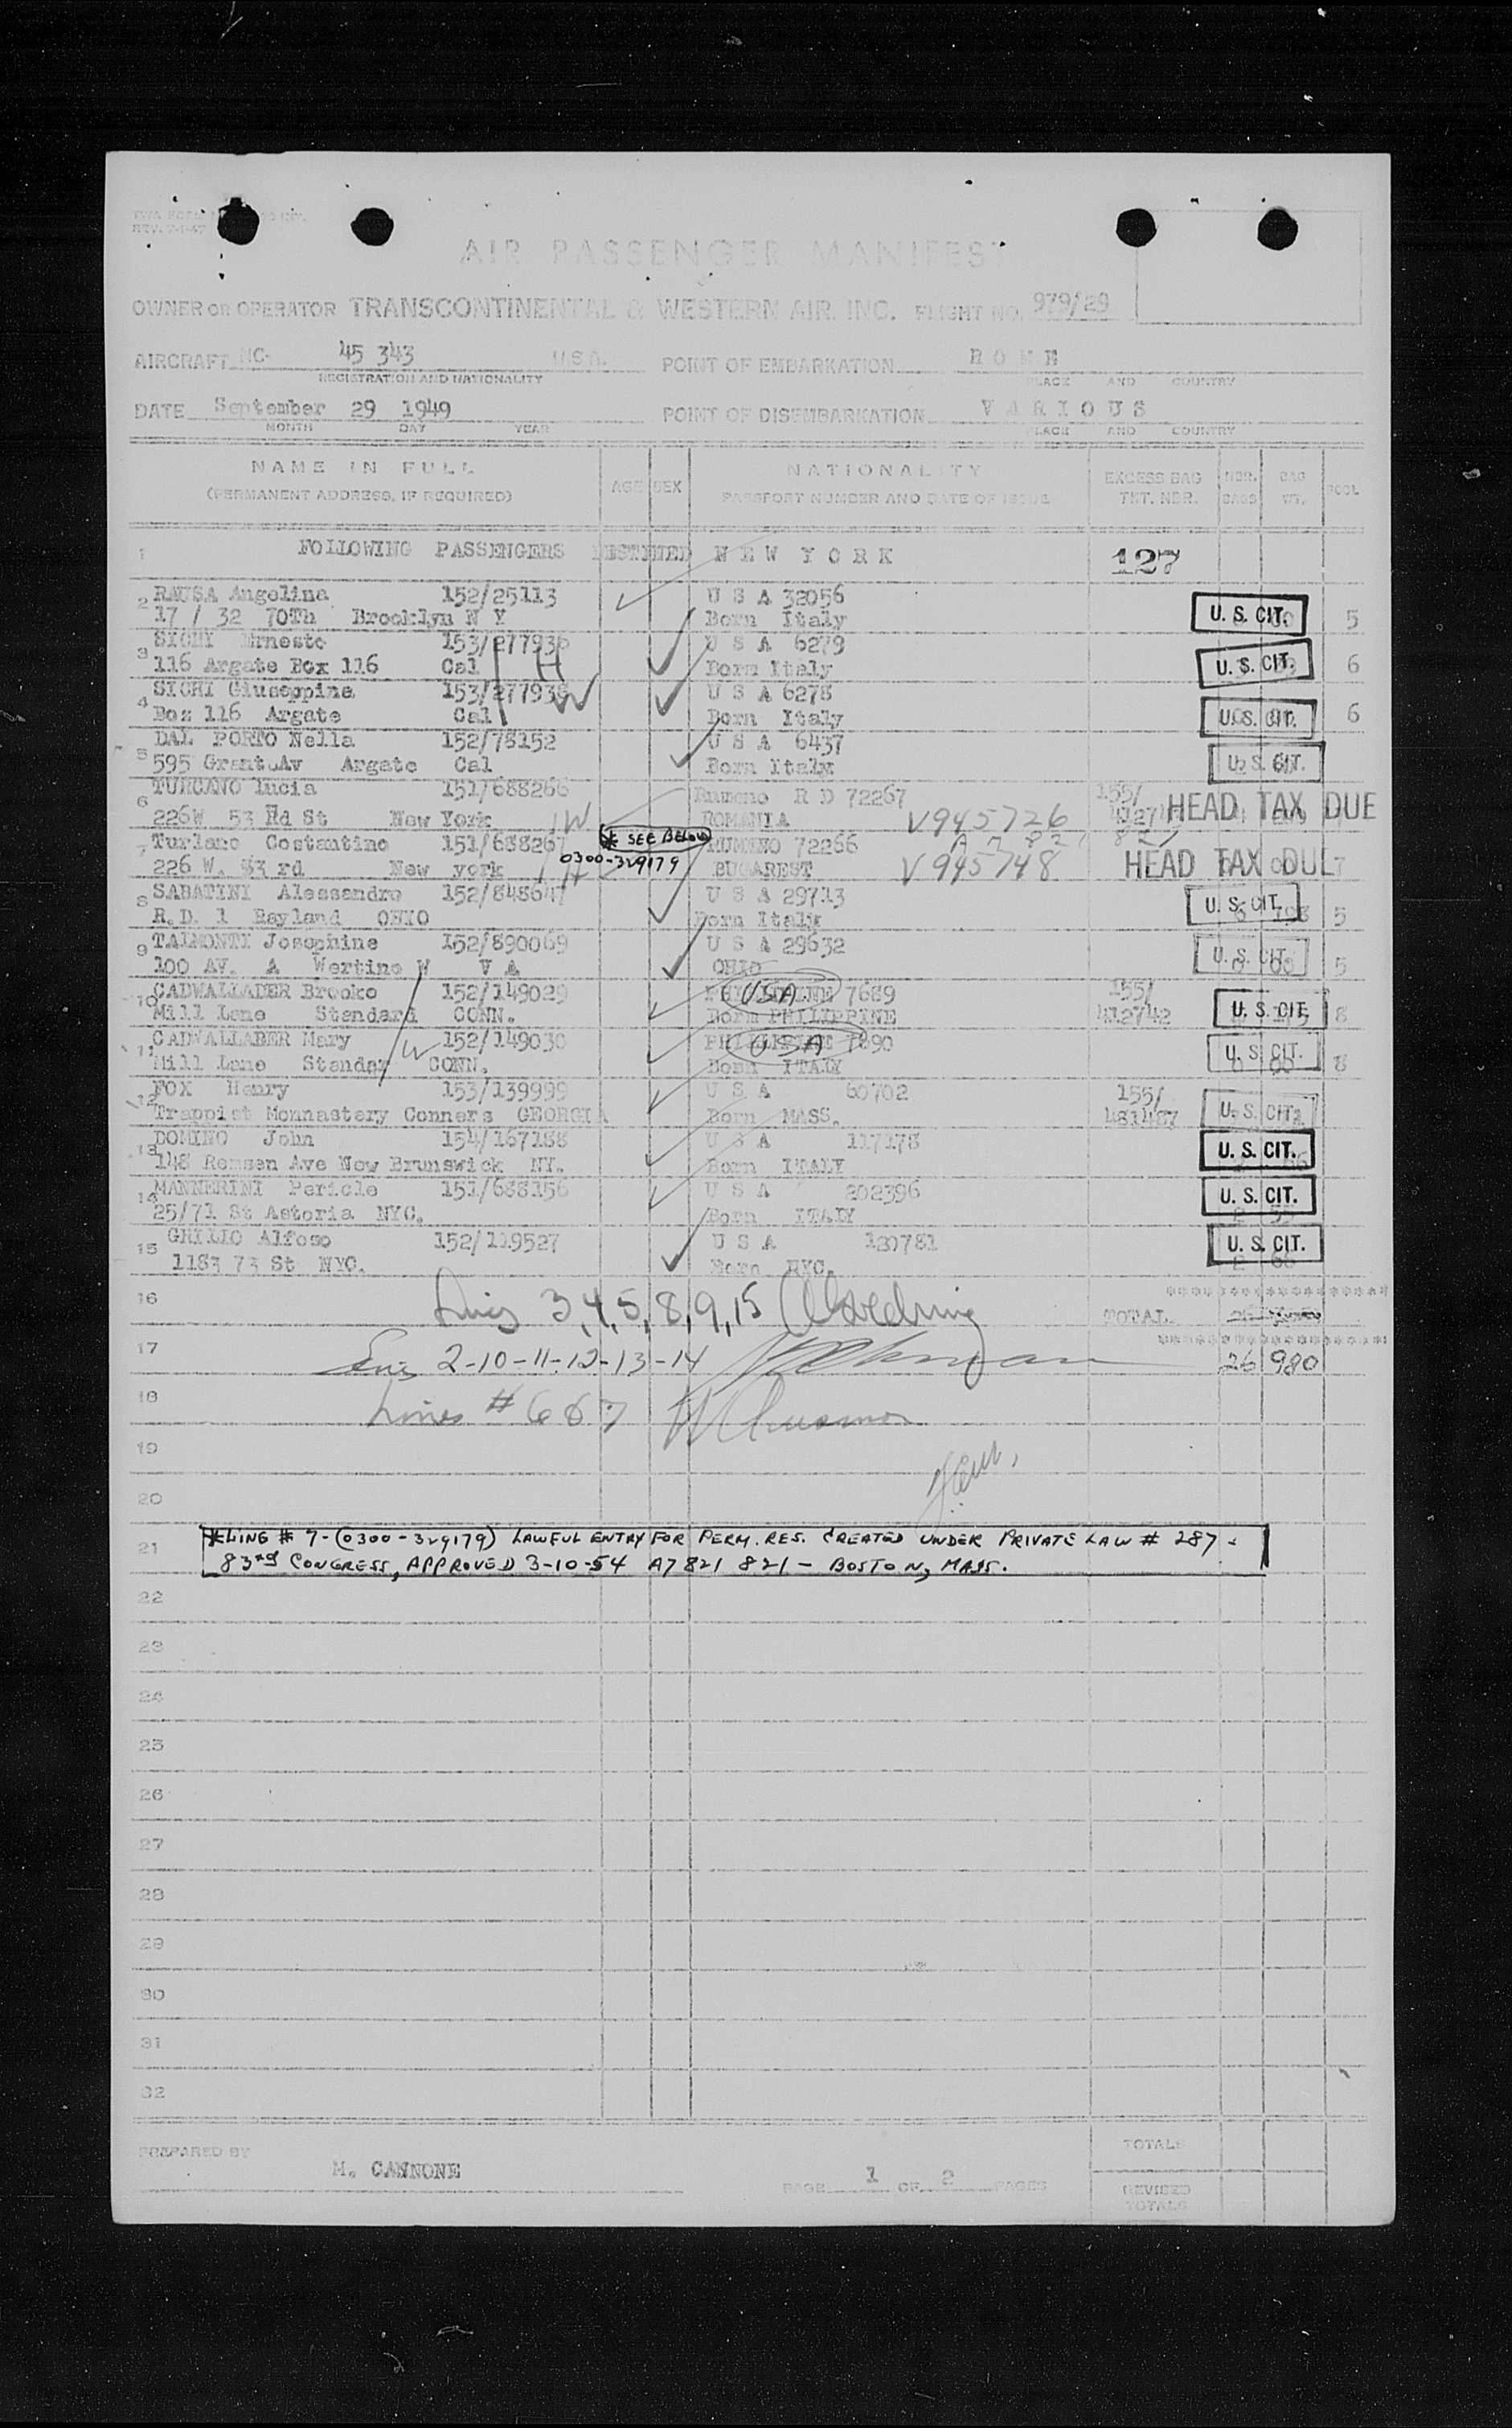 REV. 7-1-47
AIR PASSENGER MANIFEST
OWNER OR OPERATOR TRANSCONTINENTAL & WESTERN AIR. INC. FLIGHT NO. 979/29
AIRCRAFT NC- 45 343 U.S.A. POINT OF EMBARKATION R O M E
REGISTRATION AND NATIONALITY PLACE AND COUNTRY
DATE September 29 1949 POINT OF DISEMBARKATION V A R I O U S
MONTH DAY YEAR PLACE AND COUNTRY
NAME IN FULL NATIONALITY
(PERMANENT ADDRESS, IF REQUIRED) AGE SEX PASSPORT NUMBER AND DATE OF ISSUE EXCESS BAG TKT. NBR. NBR. BAGS BAG WT. POOL
1 FOLLOWING PASSENGERS DESTINED N E W Y O R K 127
2 RAUSA Angelina 152/25113 U S A 32056
17 / 32 70Th Brooklyn N Y Born Italy U. S. CIT. 5
3 SICHI Ernesto 153/277936 U S A 6279
116 Argate Box 116 Cal H Born Italy U. S. CIT. 6
4 SICHI Giuseppina 153/277938 W U S A 6278
Box 116 Argate Cal Born Italy U. S. CIT. 6
5 DAL PORTO Nella 152/78152 U S A 6437
595 Grant.Av Argate Cal Born Italy U. S. CIT.
6 TURCANO lucia 151/688266 Rumeno R D 72267 155/
226W 53 Rd St New York W ROMANIA V945726 HEAD TAX DUE
7 Turlano Costantino 151/688267 * SEE BELOW RUMENO 72266
226 W. 53 rd New york H 0300-329179 BUCAREST V945748 HEAD TAX DUE 7
8 SABATINI Alessandro 152/848647 U S A 29713
R.D. 1 Rayland OHIO Born Italy U. S. CIT. 5
9 TAIMONTI Josephine 152/890069 U S A 29632
100 AV. A Wertino W V A OHIO U. S. CIT. 5
10 CADWALLADER Brooke 152/149029 PHILIPPINE 7689 USA 155/
Mill Lane Standard CONN. Born PHILIPPINE 412742 U. S. CIT. 8
11 CADWALLABER Mary 152/149030 W PHILIPPINE 7690 USA
Mill Lane Standar CONN. Born ITALY U. S. CIT. 8
12 FOX Henry 153/139999 U S A 60702 155/
Trappist Monnastery Conners GEORGIA Born MASS. 481487 U. S. CIT.
13 DOMINO John 154/167188 U S A 117178
148 Remsen Ave New Brunswick NY. Born ITALY U. S. CIT.
14 MANNERINI Pericle 151/688156 U S A 202396
25/71 St Astoria NYC. Born ITALY U. S. CIT.
15 GRILLO Alfoso 152/119527 U S A 130781
1183 73 St NYC. Born NYC. U. S. CIT.
16 Lines 3,4,5,8,9,15 TOTAL
17 Lines 2-10-11-12-13-14 26 980
18 Lines # 6 & 7
19
20
21 *LINE # 7-(0300-329179) LAWFUL ENTRY FOR PERM. RES. CREATED UNDER PRIVATE LAW # 287 -
83rd CONGRESS, APPROVED 3-10-54 A7821 821 - BOSTON, MASS.
22
23
24
25
26
27
28
29
30
31
32
PREPARED BY M. CANNONE PAGE 1 OF 2 PAGES TOTALS
REVISED TOTALS